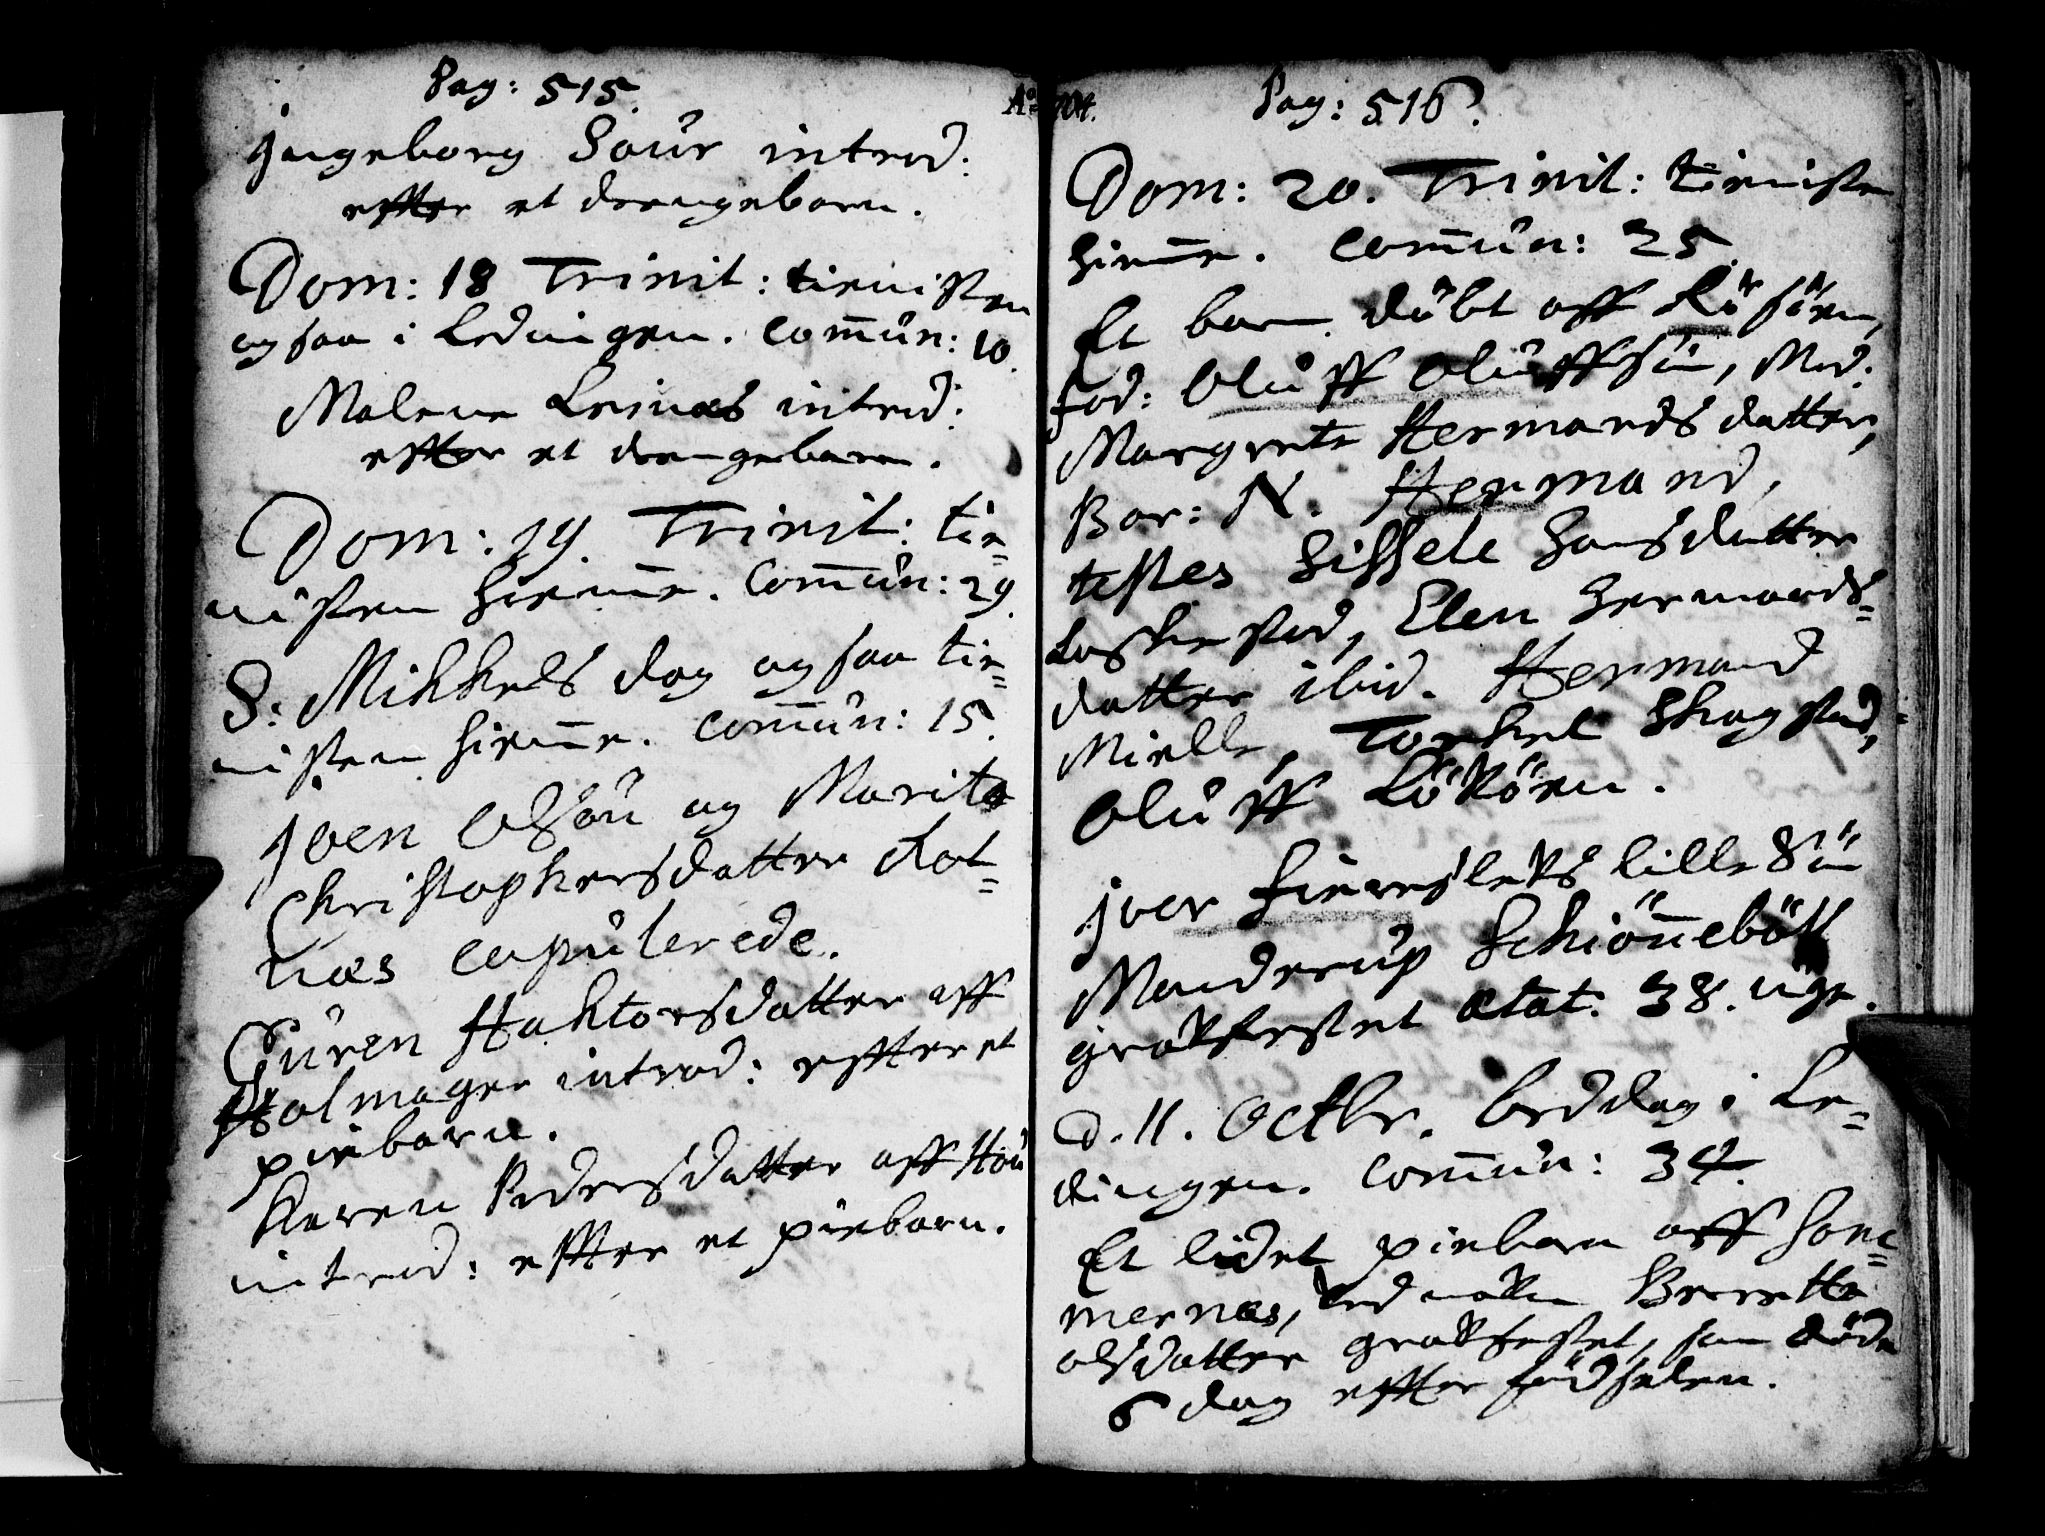 Pag: 515.
Ingeborg Sour introd:
effter et drengebarn.
Dom: 18 Trinit: tienisten
ogsaa i Ledingen. Comun: 10.
Malene Leinæs introd:
effter et drengebarn.
Dom: 19. Trinit: tie=
nisten hieme. Comun: 29.
S: Mikkels dag ogsaa tie=
nisten hieme. Comun: 15.
Joen Olsøn og Marite
Christophersdatter Rot=
næs copulerede.
Guren Haktorsdatter aff
Holmager introd: effter et
piebarn.
Karen Pedersdatter aff Hou
introd: effter et piebarn.
Ao 1704.
Pag: 516.
Dom: 20. Trinit: tienisten
hieme. Comun: 25.
Et barn döbt aff
fad: Oluff Oluffsøn, Mod:
Margrete Hermandsdatter,
Bar: N. Hermand,
testes Sissele Hansdatter
Elen Hermands=
datter ibid. Hermand
Mielle, Torkel Skagstad,
Oluff
Iver lille Søn
Manderup Schiönnebøll
gratfestet ætat: 38. uge.
d. 11. Octbr. beddag i Le=
dingen. Comun: 34.
Et lidet piebarn aff
mernæs, ved nafn Berette
olsdatter gratfestet, som döde
6 dag effter födselen.